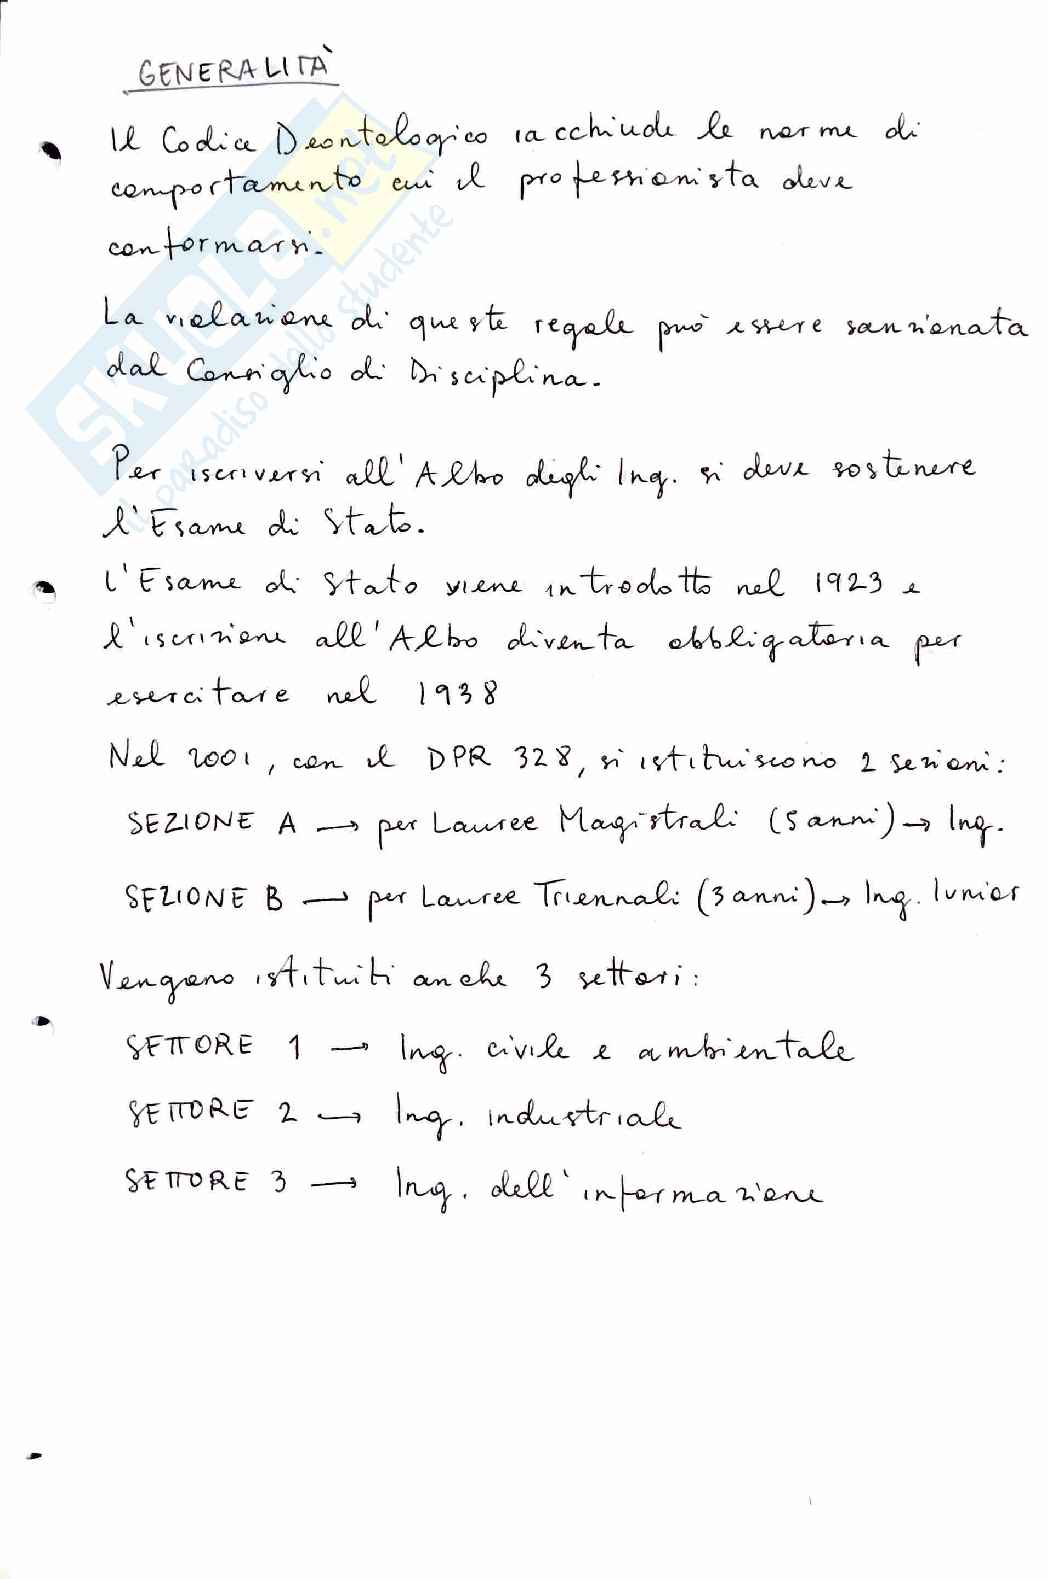 GENERALITÀ
Il Codice Deontologico racchiude le norme di
comportamento cui il professionista deve
conformarsi.
La violazione di queste regole può essere sanzionata
dal Consiglio di Disciplina.
Per iscriversi all'Albo degli Ing. si deve sostenere
l'Esame di Stato.
L'Esame di Stato viene introdotto nel 1923 e
l'iscrizione all'Albo diventa obbligatoria per
esercitare nel 1938
Nel 2001, con il DPR 328, si istituiscono 2 sezioni:
SEZIONE A → per Lauree Magistrali (5 anni) → Ing.
SEZIONE B → per Lauree Triennali (3 anni) → Ing. Iunior
Vengono istituiti anche 3 settori:
SETTORE 1 → Ing. civile e ambientale
SETTORE 2 → Ing. industriale
SETTORE 3 → Ing. dell'informazione
SKUOLA.net
il paradiso dello studente